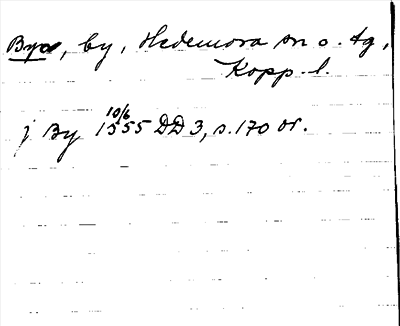 Byn, by, Hedemora sn o. tg,
Kopp. l.
10/6
j By 1355 DD 3, s. 170 or.